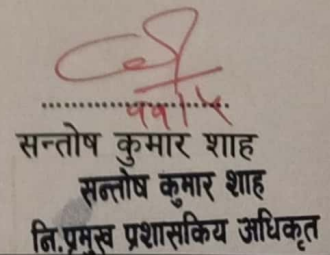 ११।५
सन्तोष कुमार शाह
सन्तोष कुमार शाह
नि.प्रमुख प्रशासकिय अधिकृत